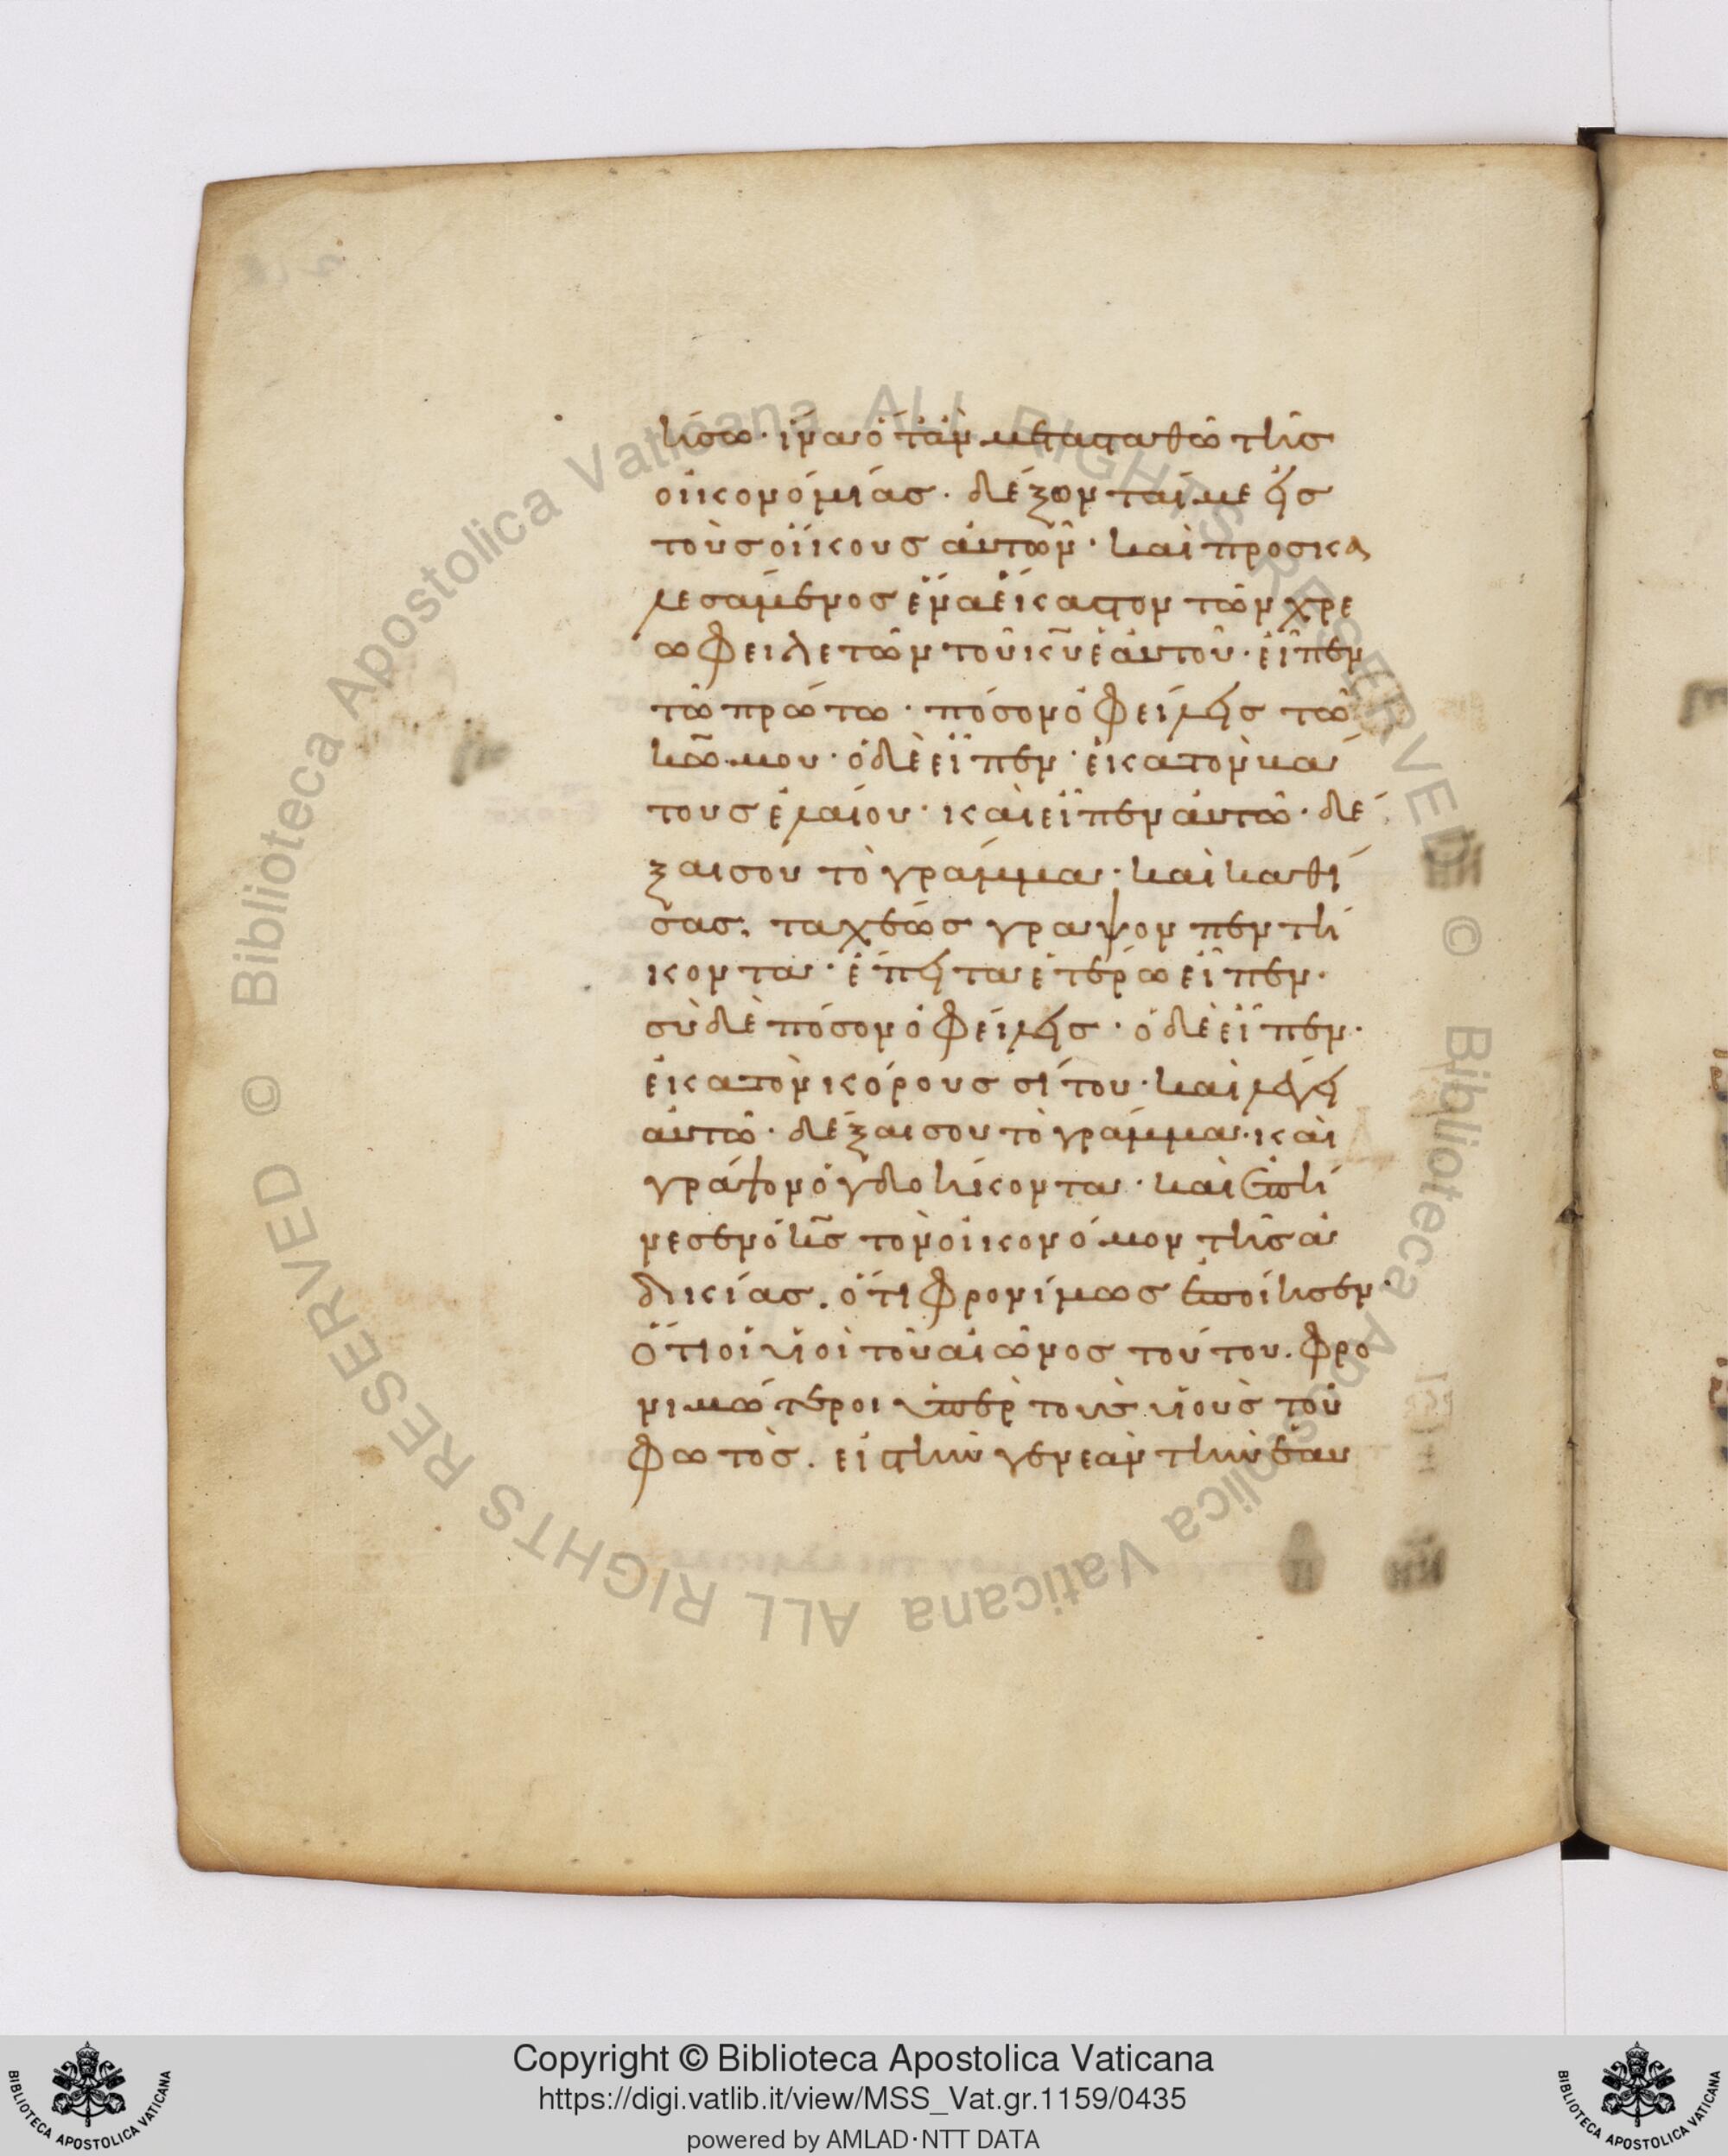 ήσω· ἵνα ὅταν μετασταθῶ τῆς
οἰκονομίας· δέξονταί με εἰς
τοὺς οἴκους αὐτῶν· καὶ προσκα
λεσάμενος ἕνα ἕκαστον τῶν χρε
ωφειλετῶν τοῦ κ̅υ̅ ἑαυτοῦ· εἶπεν
τῶ πρώτω· πόσον ὀφείλεις τῶ
κ̅ω̅ μου· ὁ δὲ εἶπεν· ἑκατὸν βά
τους ἐλαίου· καὶ εἶπεν αὐτῶ· δέ
ξαι σου τὸ γράμμα· καὶ καθί
σας, ταχέως γραψον πεντή
κοντα· ἔπειτα ἑτέρω εἶπεν·
σὺ δὲ πόσον ὀφείλεις· ὁ δὲ εἶπεν·
ἑκατὸν κόρους σίτου· καὶ λέγει
αὐτῶ· δέξαι σου τὸ γράμμα· καὶ
γράψον ὀγδοήκοντα· καὶ ἐπή
νεσεν ὁ κ̅ς̅ τὸν οἰκονόμον τῆς ἀ
δικίας. ὅτι φρονίμως ἐποίησεν·
ὅτι οἱ υἱοὶ τοῦ αἰῶνος τούτου. φρο
νιμώτεροι ὑπὲρ τοὺς υἱοὺς τοῦ
φωτὸς. εἰς τὴν γενεὰν τὴν ἑαυ
Copyright © Biblioteca Apostolica Vaticana
https://digi.vatlib.it/view/MSS_Vat.gr.1159/0435
powered by AMLAD·NTT DATA